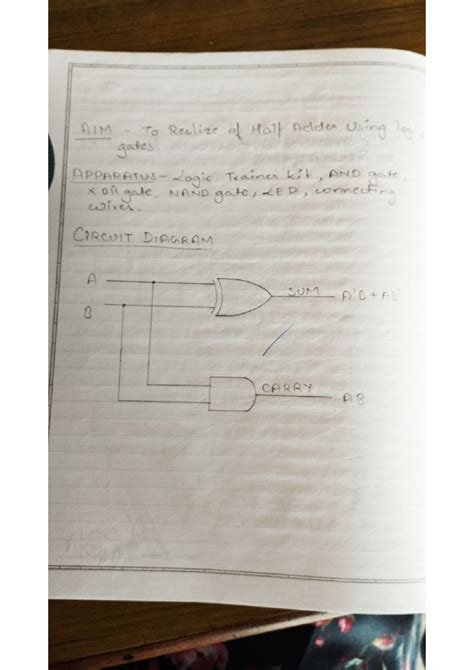 AIM - To Realize of Half Adder Using logic
gates.
APPARATUS - Logic Trainer kit, AND gate,
XOR gate, NAND gate, LED, connecting
wires.
CIRCUIT DIAGRAM
A
SUM
A'B + AB'
B
CARRY
AB